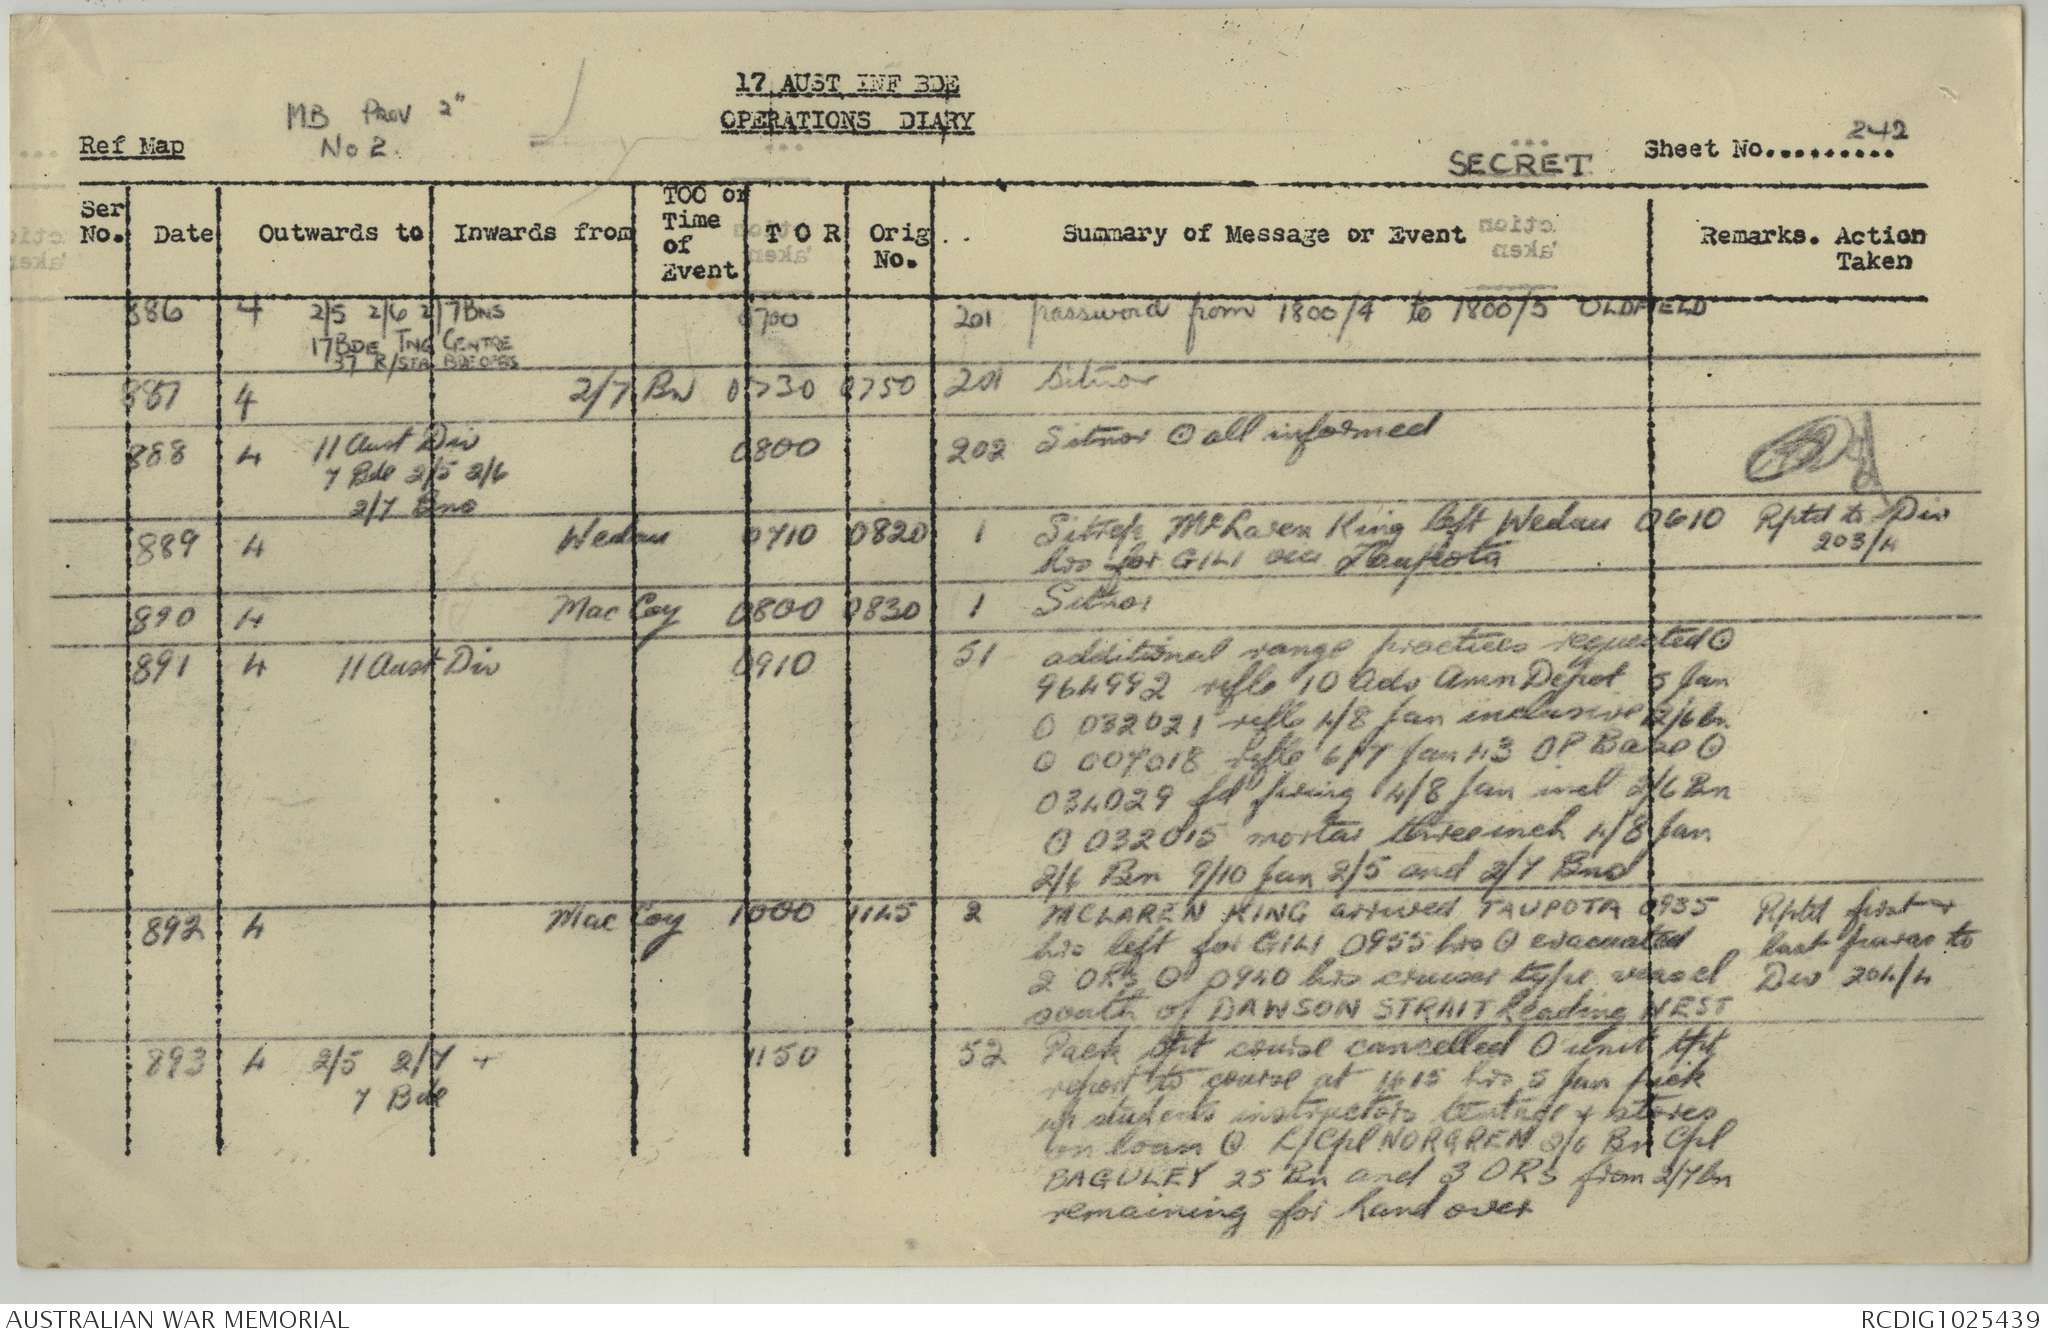 17 AUST INF BDE
OPERATIONS DIARY
MB Prov 2"
No 2.
Ref Map
SECRET
Sheet No.......... 242
Ser No. Date Outwards to Inwards from TOO or Time of Event T O R Orig No. Summary of Message or Event Remarks. Action Taken
886 4 2/5 2/6 2/7 BNS 0700 201 password from 1800/4 to 1800/5 OLDFIELD
17 BDE TNG CENTRE
37 R/STA BDE OFRS
887 4 2/7 Bn 0730 0750 201 Sitnor
888 4 11 Aust Div 0800 202 Sitnor ⊙ all informed
7 Bde 2/5 2/6
2/7 Bns
889 4 Wedau 0710 0820 1 Sitrep McLaren King left Wedau 0610 Rptd to Div
hrs for GILI via Taupota 203/4
890 4 MacCoy 0800 0830 1 Sitnor
891 4 11 Aust Div 0910 51 additional range practices requested ⊙
964992 rifle 10 Adv Amn Depot 5 Jan
⊙ 032021 rifle 4/8 Jan inclusive 2/6 Bn
⊙ 007018 rifle 6/7 Jan 43 OP Base ⊙
034029 fd firing 4/8 Jan incl 2/6 Bn
⊙ 032015 mortar three inch 4/8 Jan
2/6 Bn 9/10 Jan 2/5 and 2/7 Bns
892 4 MacCoy 1000 1145 2 MCLAREN KING arrived TAUPOTA 0935 Rptd first +
hrs left for GILI 0955 hrs ⊙ evacuated last paras to
2 ORs ⊙ 0940 hrs cruiser type vessel Div 204/4
south of DAWSON STRAIT heading WEST
893 4 2/5 2/7 + 1150 52 Pack tpt course cancelled ⊙ unit tpt
7 Bde report to course at 1415 hrs 5 Jan pick
up students instructors tentage + stores
on loan ⊙ L/Cpl NORGREN 2/6 Bn Cpl
BAGULEY 25 Bn and 3 ORs from 2/7 Bn
remaining for hand over
AUSTRALIAN WAR MEMORIAL
RCDIG1025439